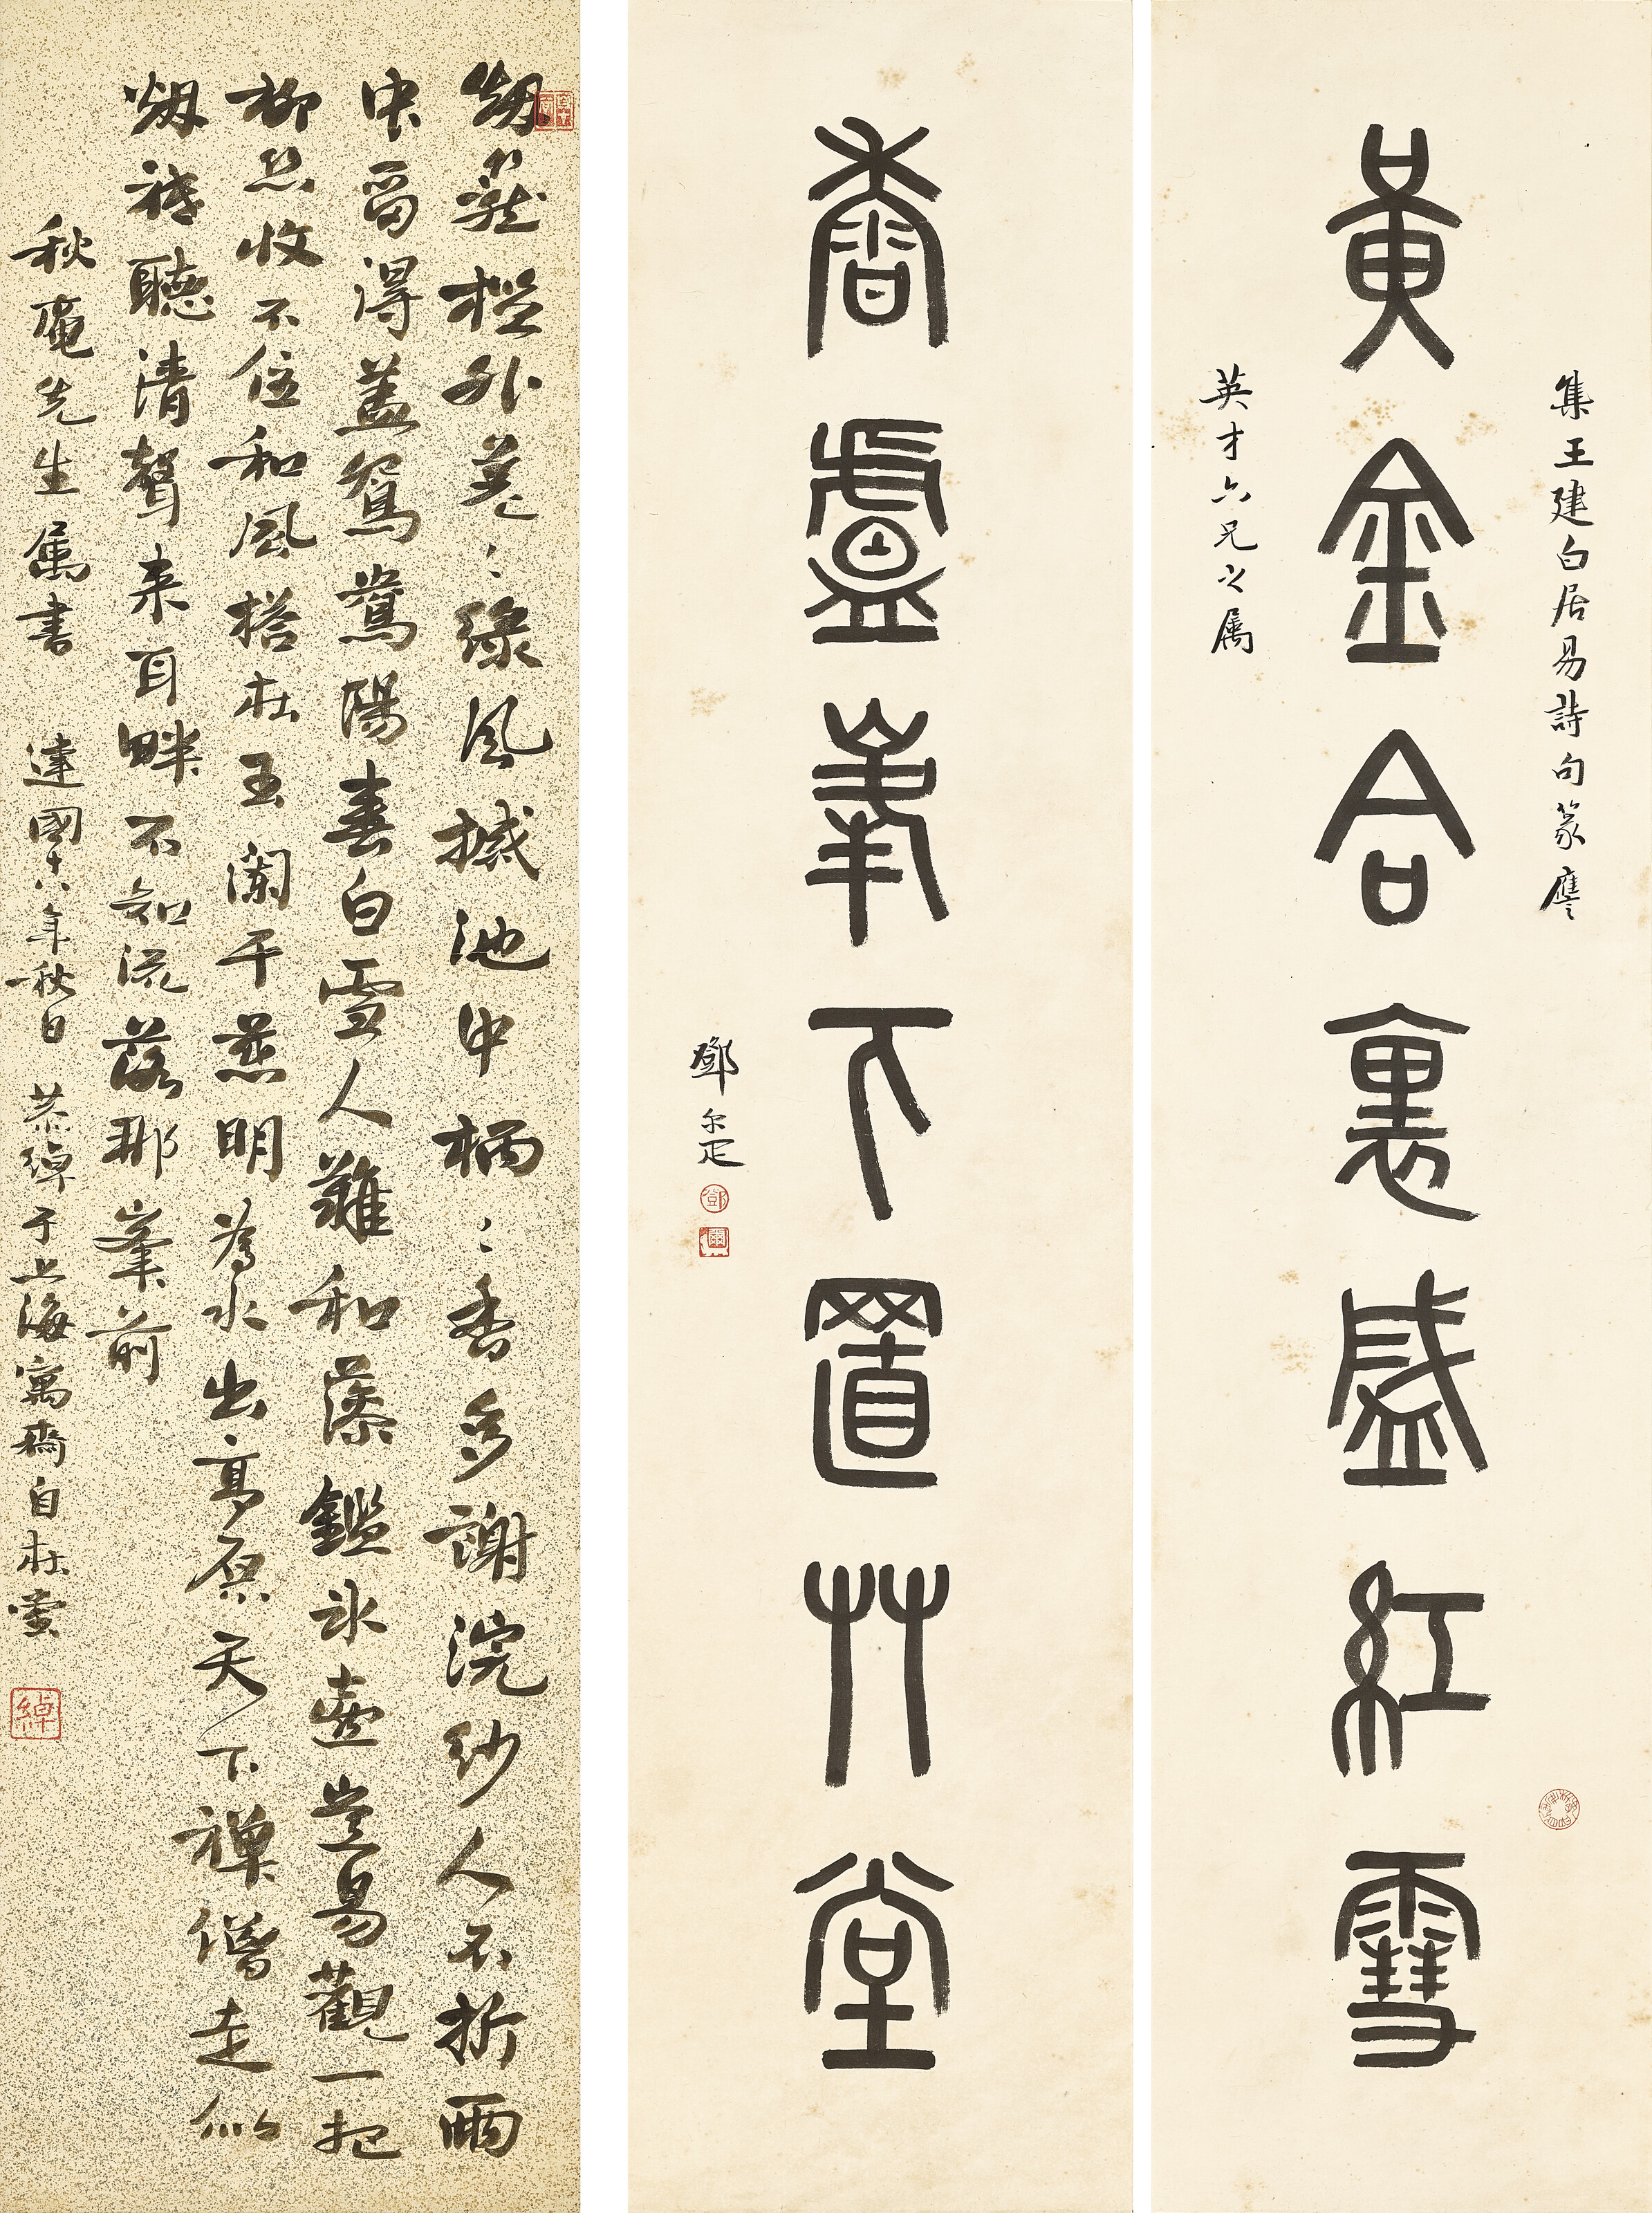 集王建白居易詩句篆譍
黃金合裏盛紅雪
英才六兄之屬
香盧峯下置艸堂
鄧尔疋
烟籠檻外差〻綠風撼池中柄〻香多謝浣紗人不折雨
中留得蓋鴛鴦陽春白雪人難和藻鑑氷壺豈易觀一把
柳絲收不住和風搭在玉闌干明為水出高原天下禪僧走似
烟祗聽清聲来耳畔不知流落那峯前
秋庵先生属書 建國十八年秋日 恭綽于上海寓齋自在
綽